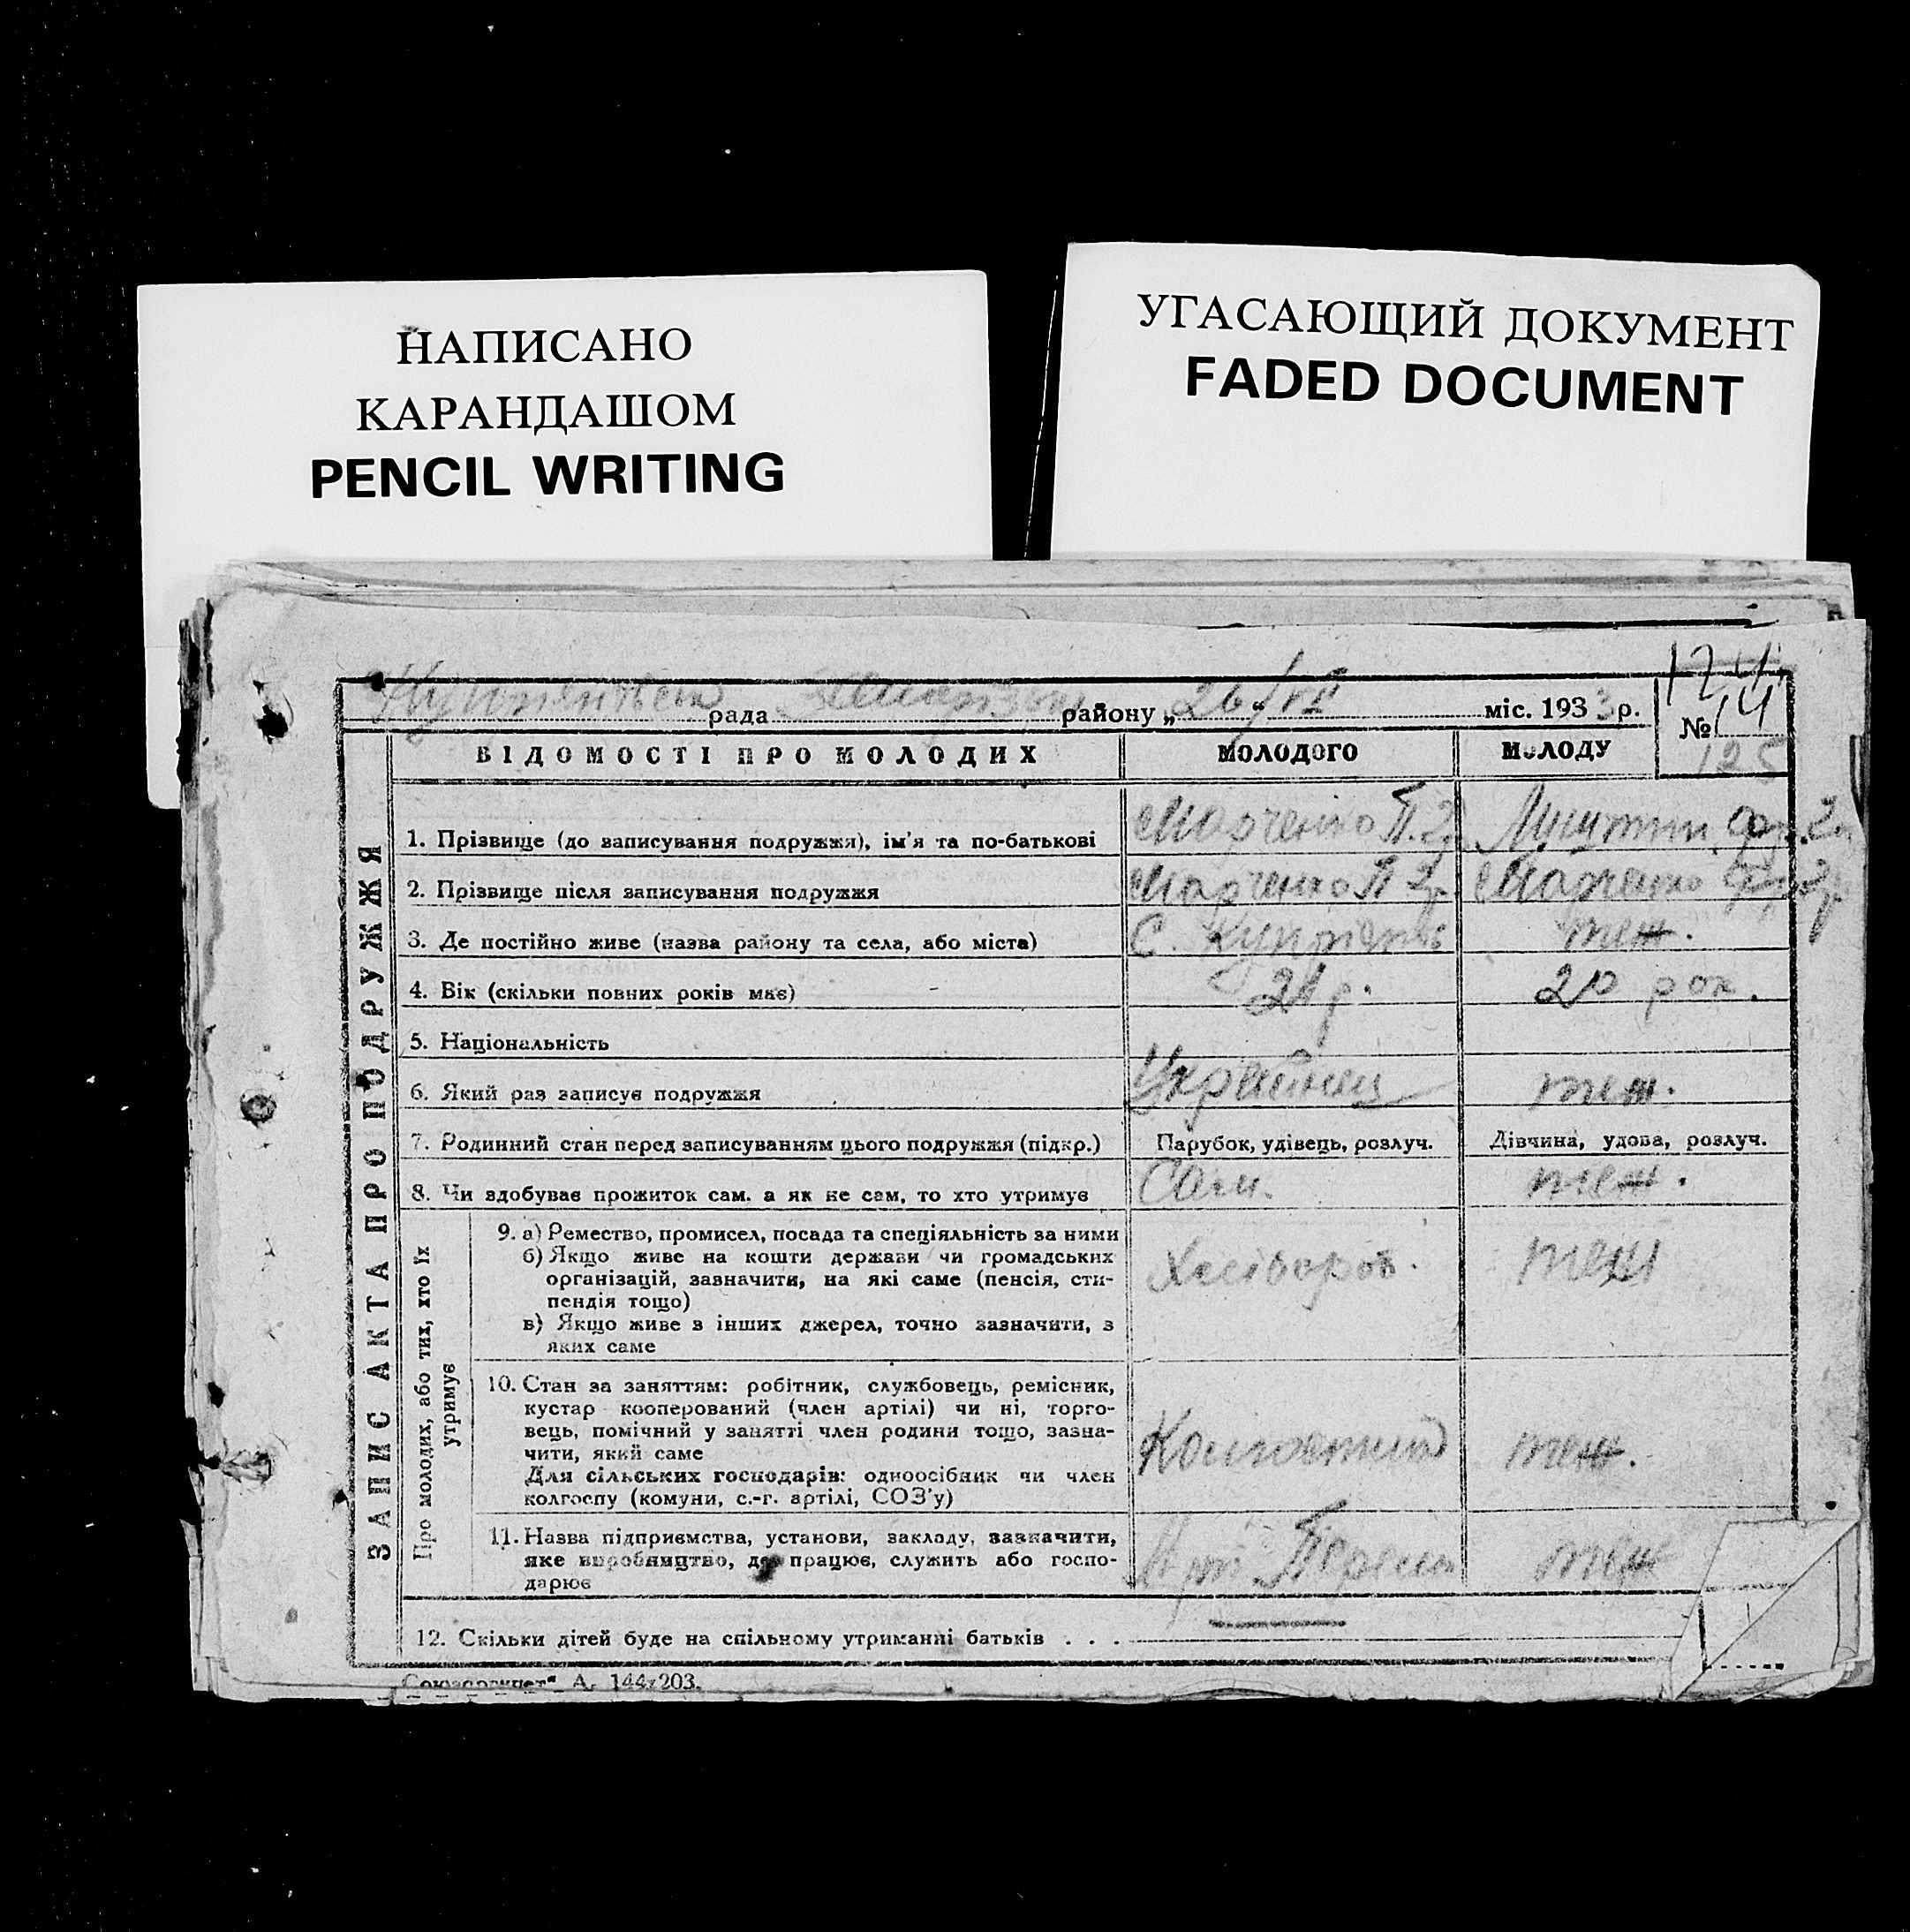 НАПИСАНО
КАРАНДАШОМ
PENCIL WRITING
УГАСАЮЩИЙ ДОКУМЕНТ
FADED DOCUMENT
рада району „26/VII“ міс. 1933 р.
№ 14
125
ЗАПИС АКТА ПРО ПОДРУЖЖЯ
ВІДОМОСТІ ПРО МОЛОДИХ МОЛОДОГО МОЛОДУ
1. Прізвище (до записування подружжя), ім'я та по-батькові Марченко П.
2. Прізвище після записування подружжя Марченко П Марченко
3. Де постійно живе (назва району та села, або міста) С. теж.
4. Вік (скільки повних років має) 21 р. 20 рок.
5. Національність
6. Який раз записує подружжя Українец теж.
7. Родинний стан перед записуванням цього подружжя (підкр.) Парубок, удівець, розлуч. Дівчина, удова, розлуч.
8. Чи здобуває прожиток сам, а як не сам, то хто утримує Сам. теж.
Про молодих, або тих, хто їх
утримує
9. а) Ремество, промисел, посада та спеціяльність за ними
б) Якщо живе на кошти держави чи громадських
організацій, зазначити, на які саме (пенсія, сти-
пендія тощо)
Хлібороб. теж
в) Якщо живе з інших джерел, точно зазначити, з
яких саме
10. Стан за заняттям: робітник, службовець, ремісник,
кустар кооперований (член артілі) чи ні, торго-
вець, помічний у занятті член родини тощо, зазна-
чити, який саме
теж.
Для сільських господарів: одноосібник чи член
колгоспу (комуни, с.-г. артілі, СОЗ'у)
11. Назва підприємства, установи, закладу, зазначити,
яке виробництво, де працює, служить або госпо-
дарює
теж
12. Скільки дітей буде на спільному утриманні батьків . . .
А. 144z203.